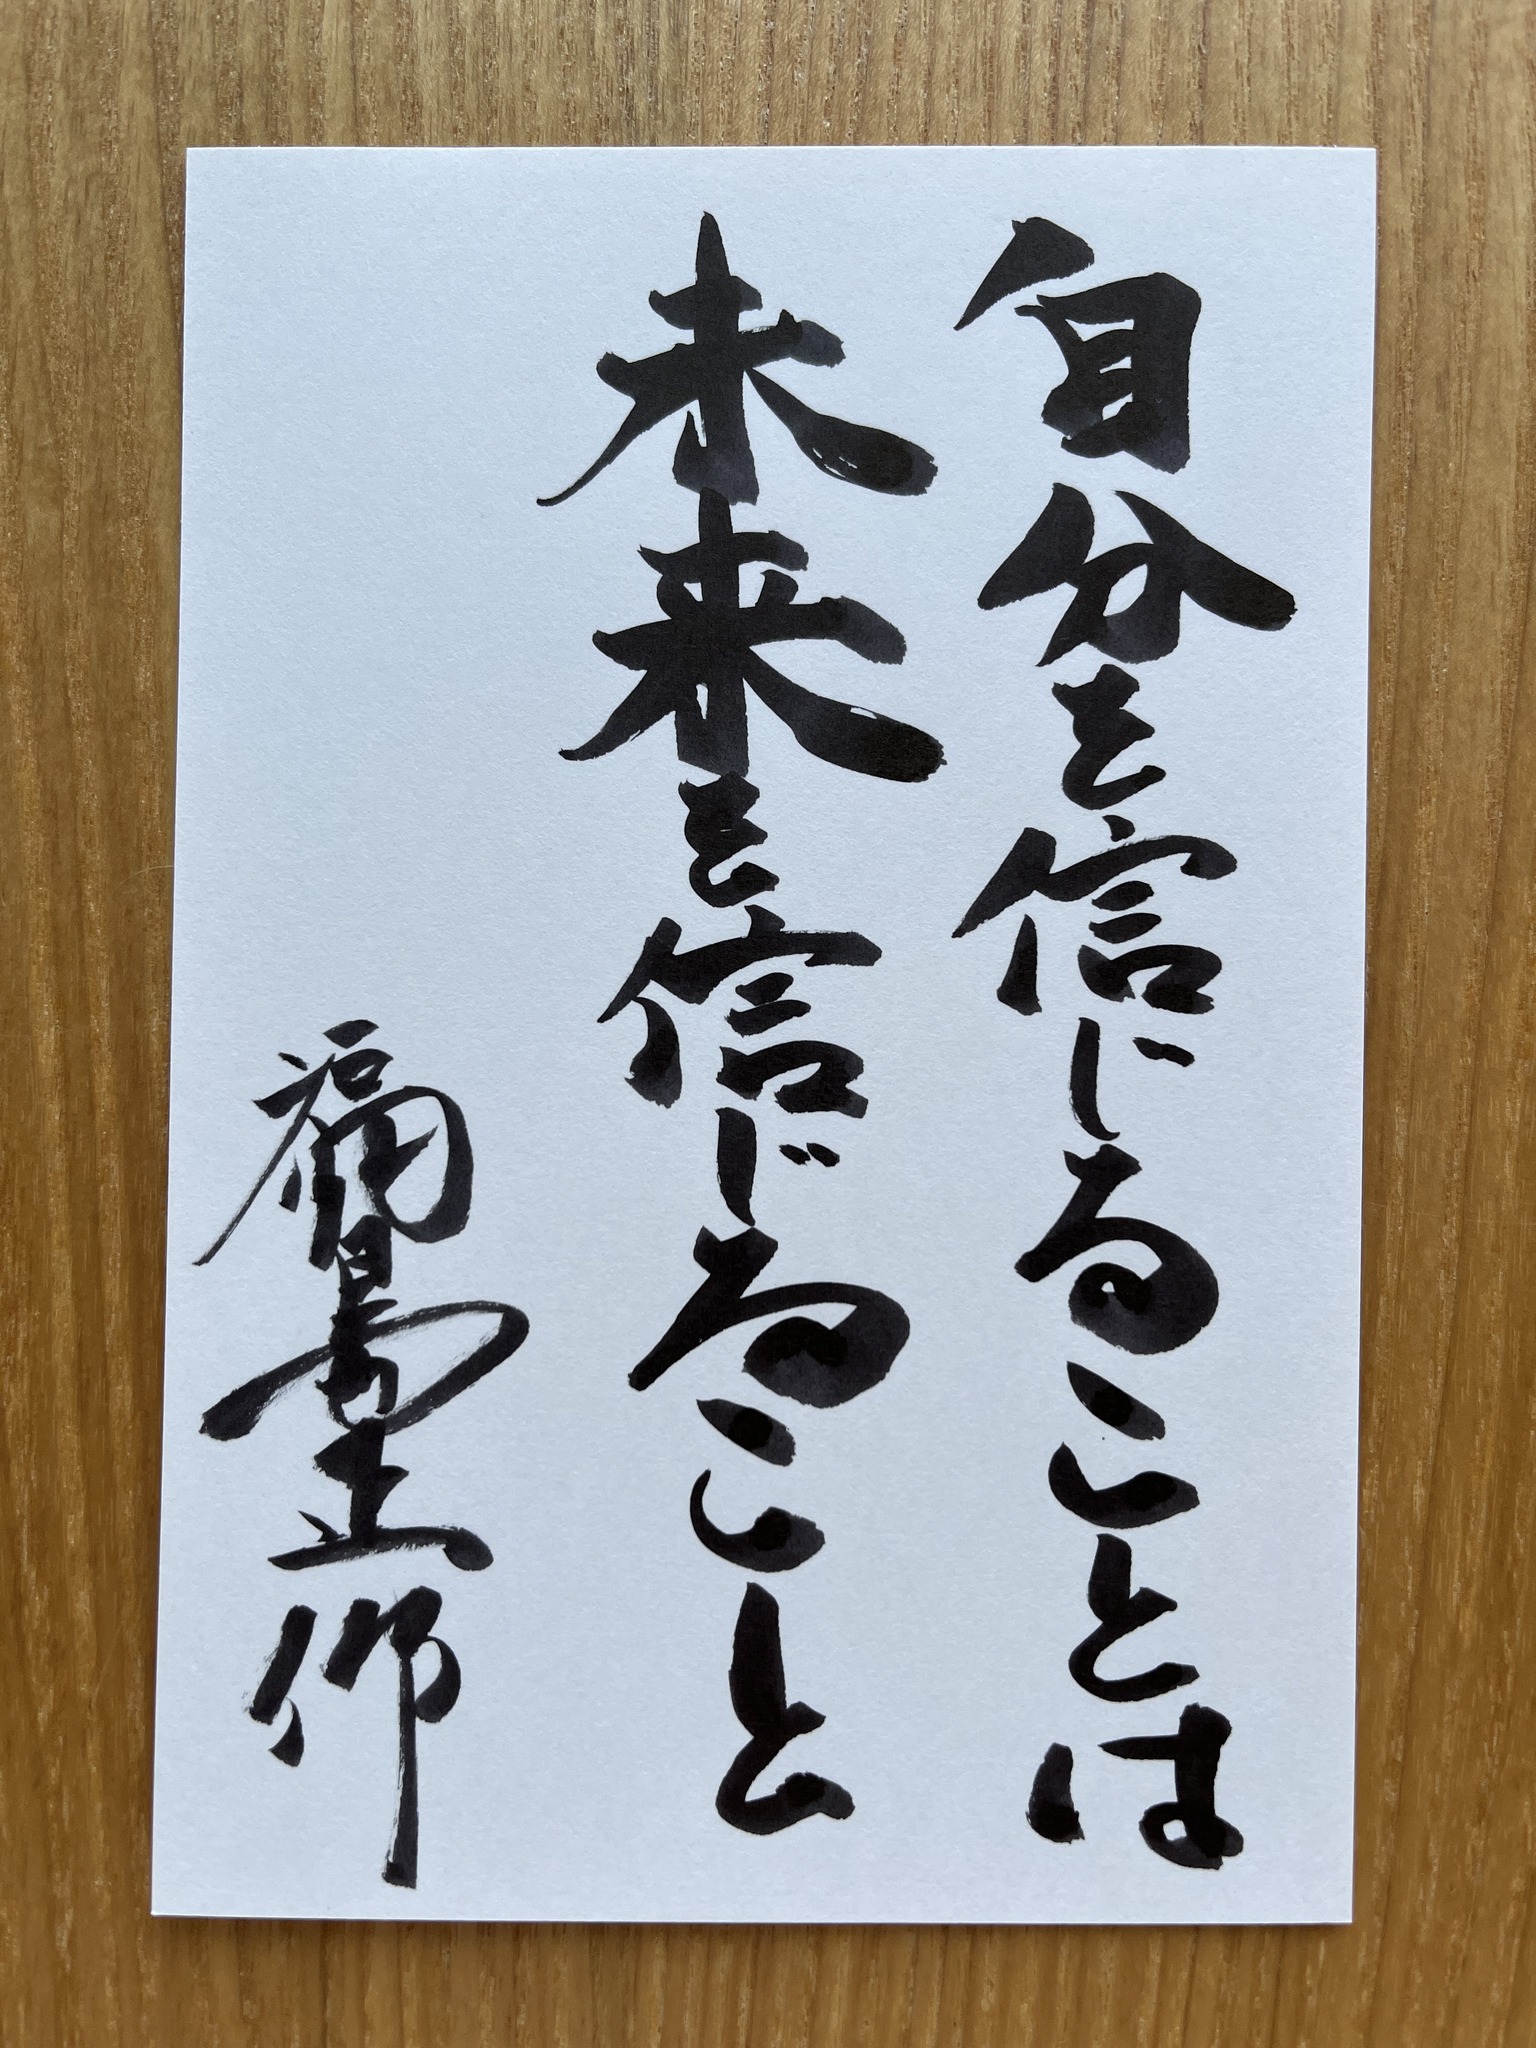 自分を信じることは
未来を信じること